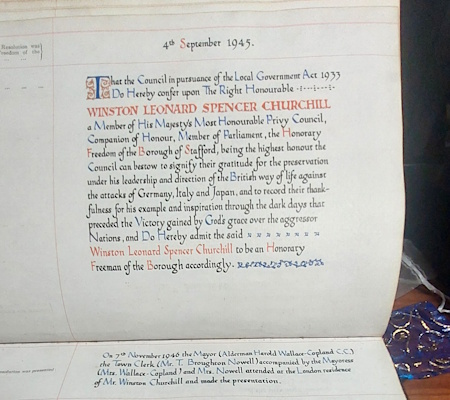 Resolution was
Freedom of the
4th September 1945.
That the Council in pursuance of the Local Government Act 1933
Do Hereby confer upon The Right Honourable
WINSTON LEONARD SPENCER CHURCHILL
a Member of His Majesty's Most Honourable Privy Council,
Companion of Honour, Member of Parliament, the Honorary
Freedom of the Borough of Stafford, being the highest honour the
Council can bestow to signify their gratitude for the preservation
under his leadership and direction of the British way of life against
the attacks of Germany, Italy and Japan, and to record their thank-
fulness for his example and inspiration through the dark days that
preceded the Victory gained by God's grace over the aggressor
Nations, and Do Hereby admit the said
Winston Leonard Spencer Churchill to be an Honorary
Freeman of the Borough accordingly.
On 7th November 1946 the Mayor (Alderman Harold Wallace-Copland C.C.)
the Town Clerk (Mr. T. Broughton Nowell) accompanied by the Mayoress
(Mrs. Wallace-Copland) and Mrs. Nowell attended at the London residence
of Mr. Winston Churchill and made the presentation.